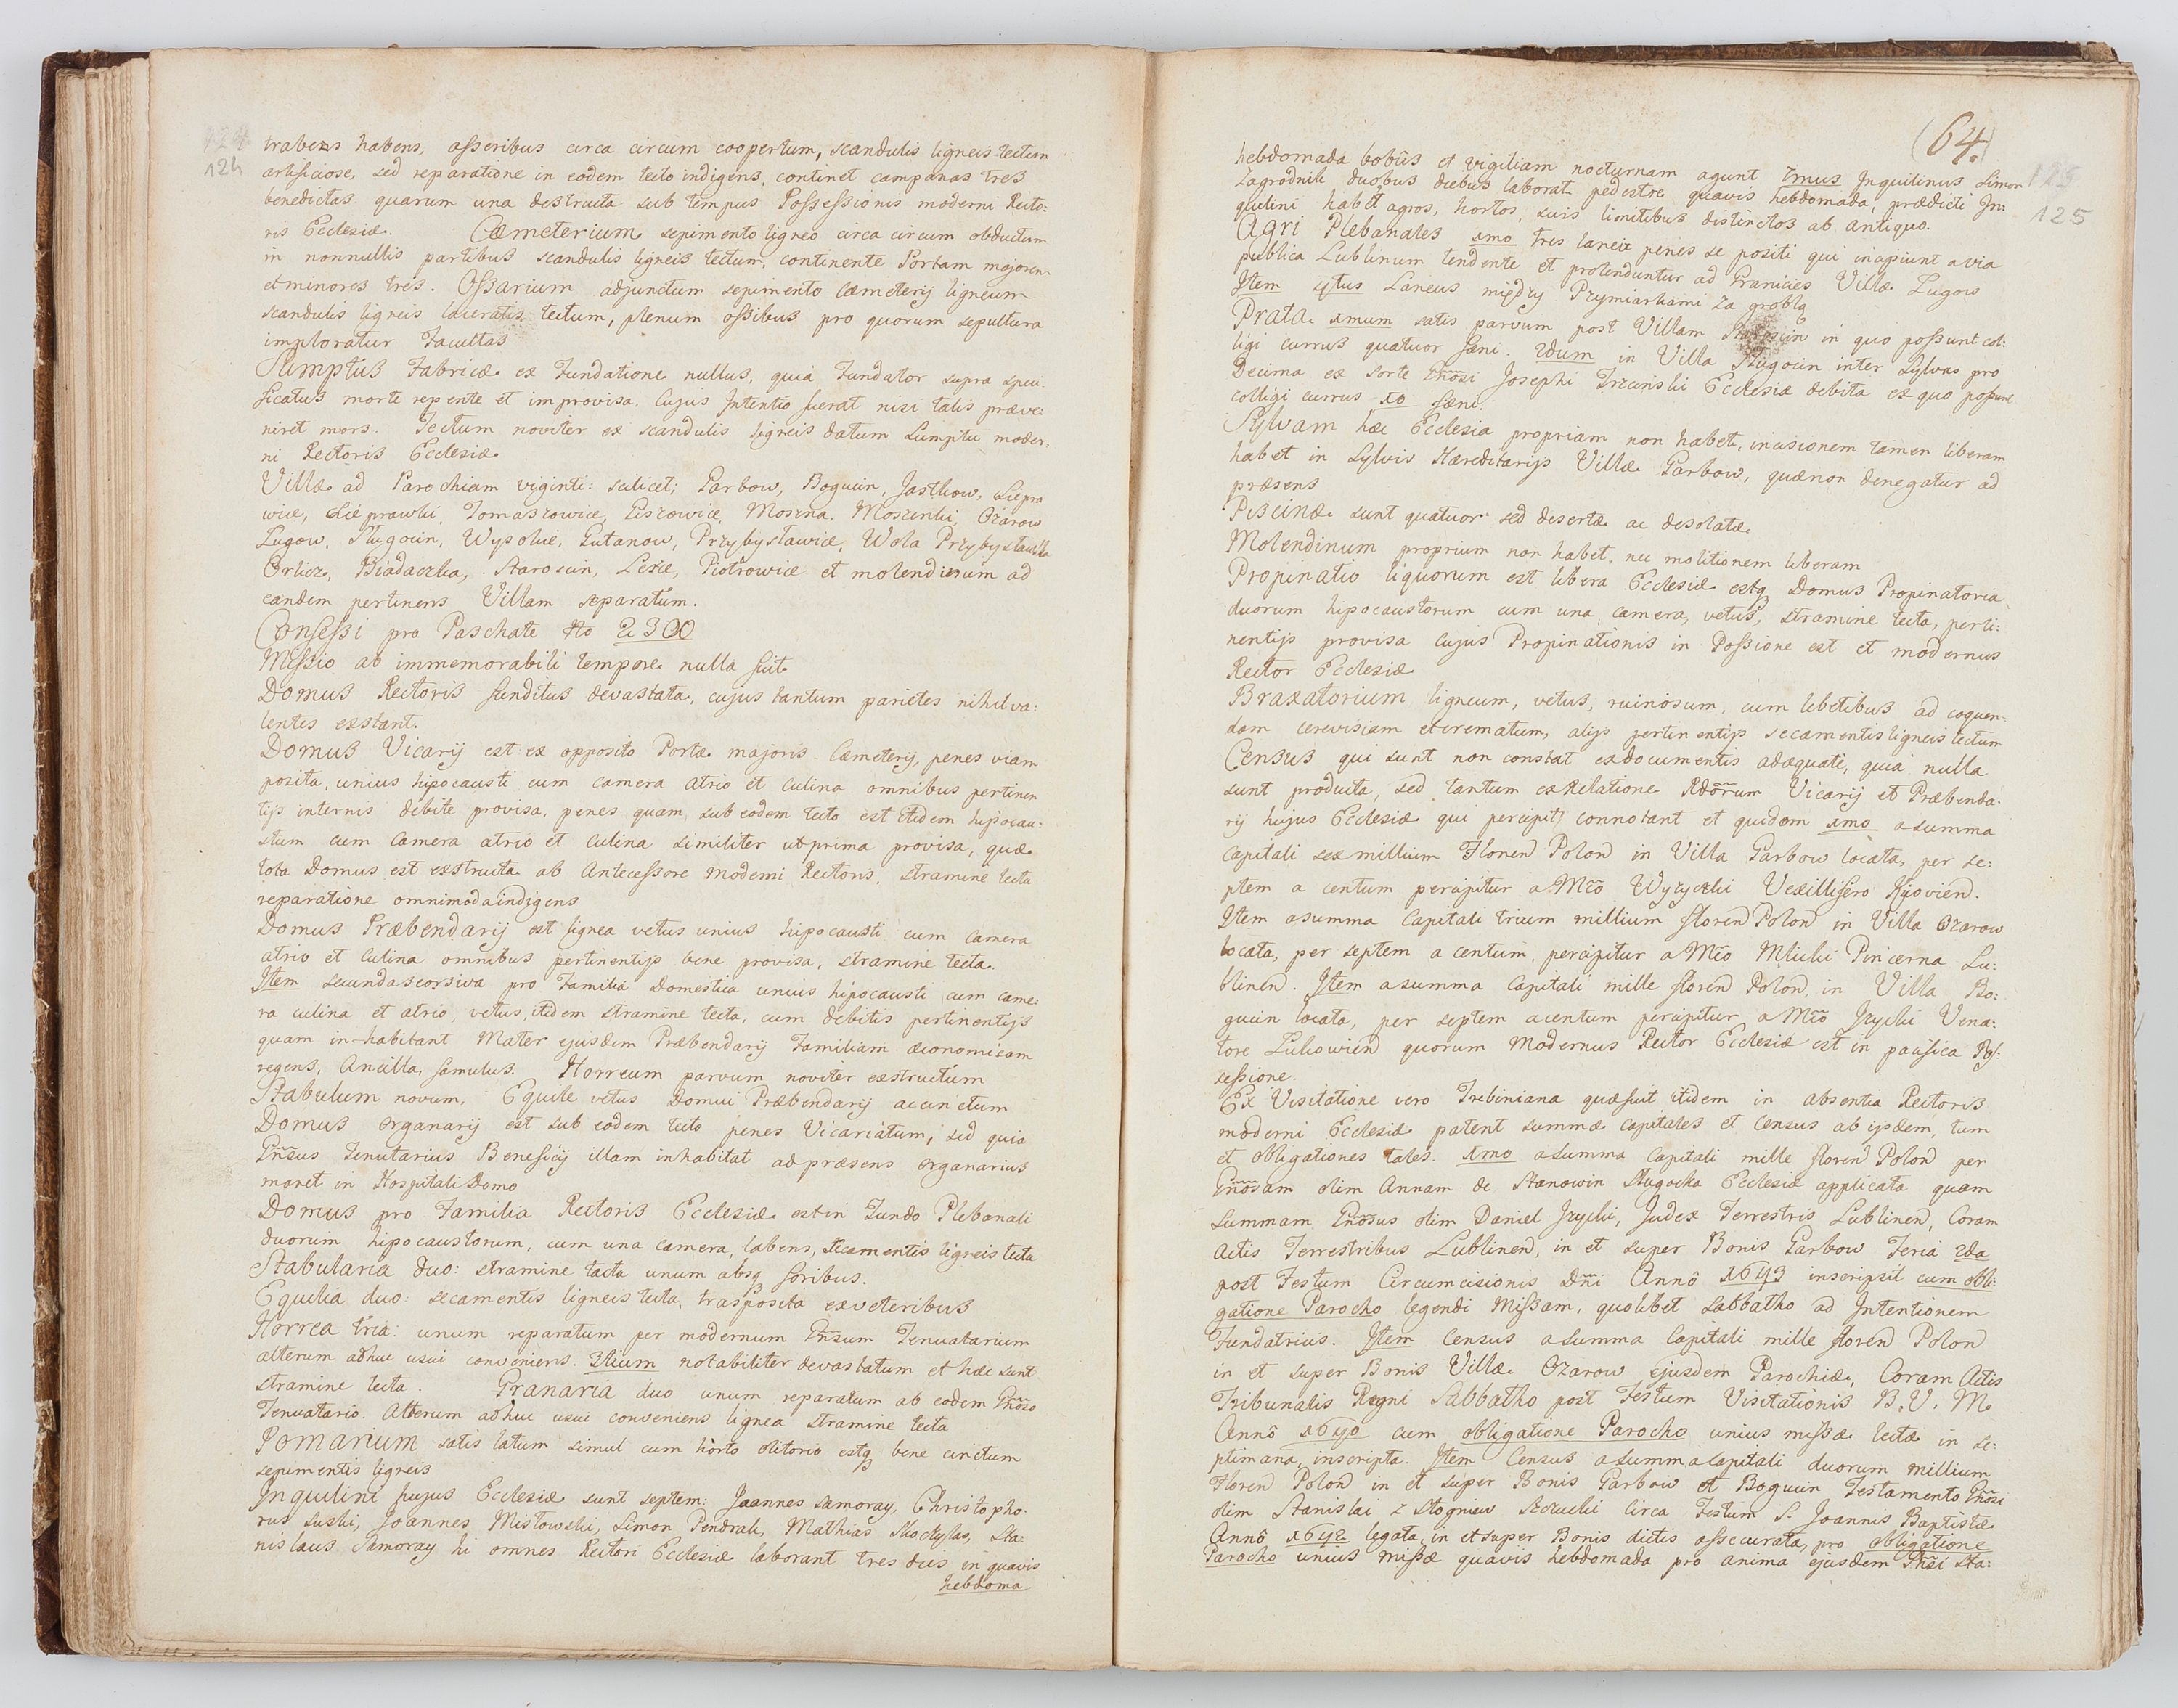 124
124
trabens habens, asseribus circa circum coopertum, scandulis ligneis tectum
artificiose, sed reparatione in eodem tecto indigens, continet campanas tres
benedictas quarum una destructa sub tempus Possessionis moderni Recto:
ris Ecclesiæ. Cæmeterium sepimento ligneo circa circum obductum
in nonnullis partibus scandulis ligneis tectum, continente Portam majorem
et minores tres. Ossarium adjunctum sepimento Cæmeterij ligneum
scandulis ligneis laceratis tectum, plenum ossibus pro quorum sepultura
imploratur Facultas
Sumptus Fabricæ ex Fundatione nullus, quia Fundator supra speci
ficatus morte repente et improvisa, Cujus Intentio fuerat nisi talis præve:
niret mors. Tectum noviter ex scandulis ligneis datum Sumptu moder:
ni Rectoris Ecclesiæ
Villæ ad Parochiam viginti: scilicet; Garbow, Bogucin, Jastkow, Siepra
wice, Sieprawki, Tomaszowice, Piszowice, Moszna, Moszenki, Ożarow
Ługow, Sługocin, Wysokie, Gutanow, Przybysławice, Wola Przybysławska
Orlicz, Biadaczka, Staroscin, Lesce, Piotrowice et molendinum ad
eandem pertinens Villam separatim.
Confessi pro Paschate No 2300
Missio ab immemorabili tempore nulla fuit
Domus Rectoris funditus devastata, cujus tantum parietes nihil va:
lentes exstant.
Domus Vicarij est ex opposito Portæ majoris Cæmeterij, penes viam
posita, unius hipocausti cum camera atrio et culina omnibus pertinen
tijs internis debite provisa, penes quam, sub eodem tecto est itidem hipocau:
stum cum Camera atrio et culina similiter ut prima provisa, quæ
tota Domus est exstructa ab Antecessore moderni Rectoris, stramine tecta
reparatione omnimoda indigens
Domus Præbendarij est lignea vetus unius hipocausti cum Camera
atrio et culina omnibus pertinentijs bene provisa, stramine tecta.
Item secunda scorsiva pro Familia Domestica unius hipocausti cum came:
ra culina et atrio, vetus, itidem stramine tecta, cum debitis pertinentijs
quam in-habitant Mater ejusdem Præbendarij Familiam æconomicam
regens, Ancilla, famulus. Horreum parvum noviter exstructum
Stabulum novum, Equile vetus Domui Præbendarij accinctum
Domus Organarij est sub eodem tecto penes Vicariatum, sed quia
Gnsus Tenutarius Beneficij illam inhabitat ad præsens Organarius
manet in Hospitali Domo
Domus pro Familia Rectoris Ecclesiæ est in Fundo Plebanali
duorum hipocaustorum, cum una camera, labens, secamentis ligneis tecta
Stabularia duo: stramine tacta unum absq foribus.
Equilia duo: secamentis ligneis tecta, trasposita ex veteribus
Horrea tria: unum reparatum per modernum Gnsum Tenuatarium
alterum adhuc usui conveniens. 3tium notabiliter devastatum et hæc sunt
stramine tecta. Granaria duo unum reparatum ab eodem Gnoso
Tenuatario. Alterum adhuc usui conveniens lignea stramine tecta
Pomarium satis latum simul cum horto olitorio estq bene cinctum
sepimentis ligneis
Inquilini hujus Ecclesiæ sunt septem: Joannes Samoray, Christopho:
rus Suski, Joannes Mistowski, Simon Pendrak, Mathias Skockylas, Sta:
nislaus Samoray hi omnes Rectori Ecclesiæ laborant tres dies in quavis
hebdoma
(64.)
125
125
hebdomada bobus et vigiliam nocturnam agunt 7mus Inquilinus Simon
Zagrodnik duobus diebus laborat pedestre quavis hebdomada, prædicti In:
quilini habet agros, hortos, suis limitibus distinctos ab antiquo.
Agri Plebanales 1mo tres laneæ penes se positi qui incipiunt a via
publica Lublinum tendente et protenduntur ad Granicies Villæ Ługow
Item 4tus Laneus między Przymiarkami za groblą
Prata 1mum satis parvum post Villam in quo possunt col:
ligi currus quatuor fæni. 2dum in Villa Sługocin inter Sylvas pro
Decima ex sorte Gnosi Josephi Trzcinski Ecclesiæ debita ex quo possunt
colligi currus 10 fæni.
Sylvam hæc Ecclesia propriam non habet, incisionem tamen liberam
habet in Sylvis Hæreditarijs Villæ Garbow, quæ non denegatur ad
præsens
Piscinæ sunt quatuor sed desertæ ac desolatæ
Molendinum proprium non habet, nec molitionem liberam
Propinatio liquorum est libera Ecclesiæ estq Domus Propinatoria
duorum hipocaustorum cum una camera, vetus, stramine tecta, perti:
nentijs provisa cujus Propinationis in Possione est et modernus
Rector Ecclesiæ
Braxatorium ligneum, vetus, ruinosum, cum lebetibus ad coquen:
dam cerevisiam et crematum, alijs pertinentijs secamentis ligneis tectum
Census qui sunt non constat ex documentis adæquate, quia nulla
sunt producta, sed tantum ex Relatione Rdorum Vicarij et Præbenda:
rij hujus Ecclesiæ qui percipit connotant et quidem 1mo a summa
Capitali sex millium Floren Polon in Villa Garbow locata, per se:
ptem a centum percipitur a Mco Wyzycki Vexillifero Kijovien.
Item a summa Capitali trium millium floren Polon in Villa Ozarow
locata, per septem a centum, percipitur a Mco Mlicki Pincerna Lu:
blinen. Item a summa Capitali mille floren Polon, in Villa Bo:
gucin locata, per septem a centum percipitur a Mco Jrzycki Vena:
tore Lukowien quorum Modernus Rector Ecclesiæ est in pacifica Pos:
sessione.
Ex Visitatione vero Trebiniana quæ fuit itidem in absentia Rectoris
moderni Ecclesiæ patent summæ capitales et Census ab ijsdem, tum
et obligationes tales. 1mo a summa Capitali mille floren Polon per
Gnosam olim Annam de Stanowin Sługocka Ecclesiæ applicata quam
Summam Gnosus olim Daniel Jrzycki, Judex Terrestris Lublinen, Coram
Actis Terrestribus Lublinen, in et super Bonis Garbow Feria 2da
post Festum Circumcisionis Dni Anno 1643 inscripsit cum obli:
gatione Parocho legendi Missam, quolibet Sabbatho ad Intentionem
Fundatricis. Item Census a summa Capitali mille floren Polon
in et super Bonis Villæ Ozarow ejusdem Parochiæ, Coram Actis
Tribunalis Regni Sabbatho post Festum Visitationis B. V. M.
Anno 1640 cum obligatione Parocho unius missæ lectæ in se:
ptimana, inscripta. Item Census a summa capitali duorum millium
Floren Polon in et super Bonis Garbow et Bogucin Testamento Gnosi
olim Stanislai z Stogniew circa Festum S. Joannis Baptistæ
Anno 1642 legata, in et super Bonis dictis assecurata, pro obligatione
Parocho unius missæ quavis hebdomada pro anima ejusdem Gnosi Sta: